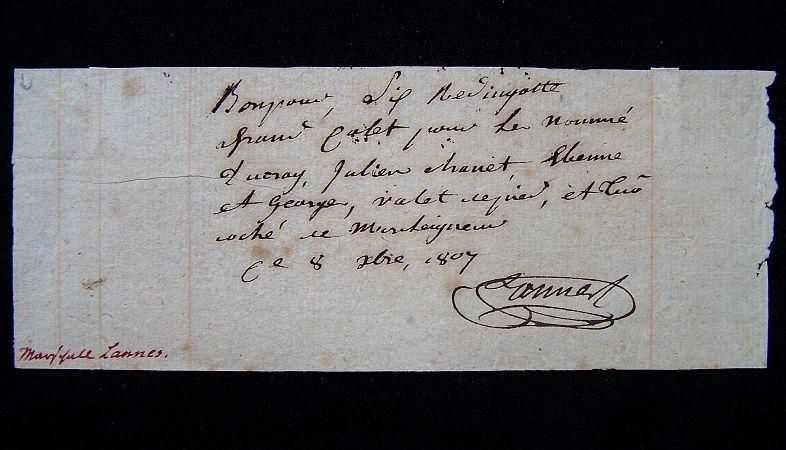 Bonpour, Six Redingotte
grand Colet pour Les nommé
ducray Julien chanet, Etienne
et George, valet depied, et
coché de Monseigneur
Ce 8 xbre, 1807
Lannes
Marschall Lannes.